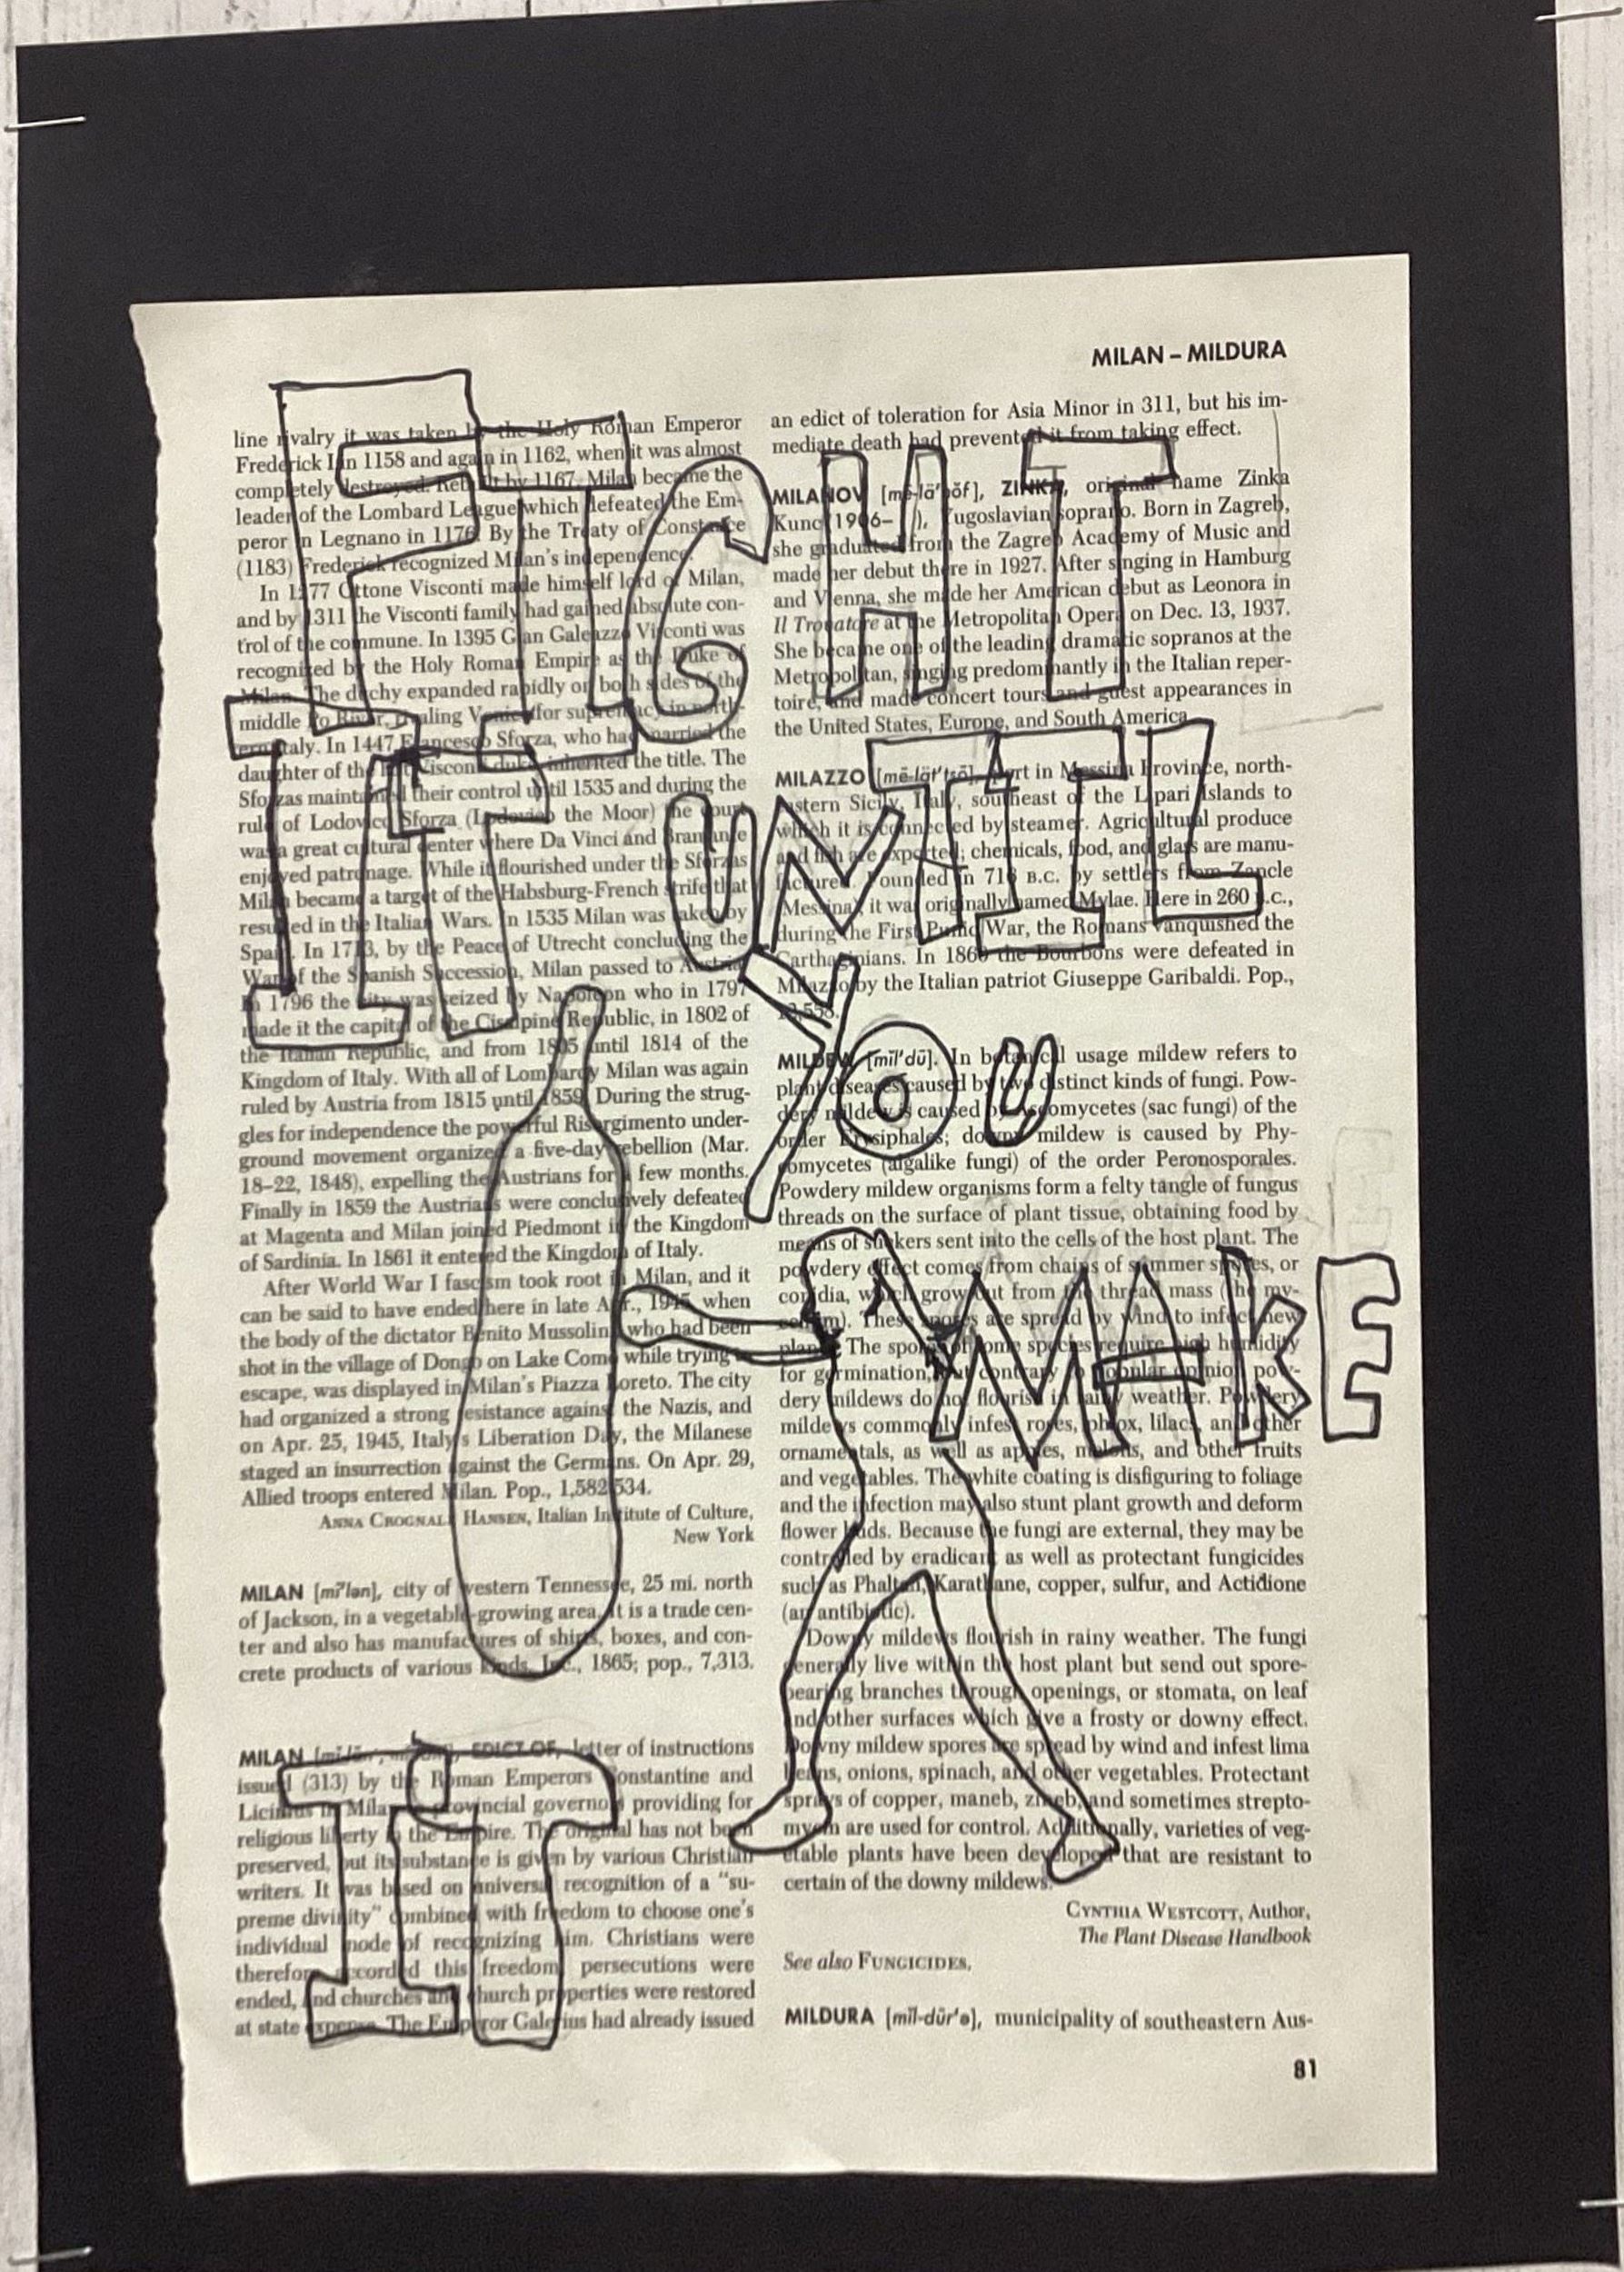 MILAN – MILDURA
FIGHT
IT UNTIL
YOU
MAKE
IT
line rivalry it was taken by the Holy Roman Emperor
Frederick I in 1158 and again in 1162, when it was almost
completely destroyed. Rebuilt by 1167, Milan became the
leader of the Lombard League which defeated the Em-
peror in Legnano in 1176. By the Treaty of Constance
(1183) Frederick recognized Milan's independence.
In 1277 Ottone Visconti made himself lord of Milan,
and by 1311 the Visconti family had gained absolute con-
trol of the commune. In 1395 Gian Galeazzo Visconti was
recognized by the Holy Roman Empire as the Duke of
Milan. The duchy expanded rapidly on both sides of the
middle Po River, rivaling Venice for supremacy in north-
ern Italy. In 1447 Francesco Sforza, who had married the
daughter of the last Visconti duke, inherited the title. The
Sforzas maintained their control until 1535 and during the
rule of Lodovico Sforza (Lodovico the Moor) the court
was a great cultural center where Da Vinci and Bramante
enjoyed patronage. While it flourished under the Sforzas
Milan became a target of the Habsburg-French strife that
resulted in the Italian Wars. In 1535 Milan was taken by
Spain. In 1713, by the Peace of Utrecht concluding the
War of the Spanish Succession, Milan passed to Austria.
In 1796 the city was seized by Napoleon who in 1797
made it the capital of the Cisalpine Republic, in 1802 of
the Italian Republic, and from 1805 until 1814 of the
Kingdom of Italy. With all of Lombardy Milan was again
ruled by Austria from 1815 until 1859. During the strug-
gles for independence the powerful Risorgimento under-
ground movement organized a five-day rebellion (Mar.
18–22, 1848), expelling the Austrians for a few months.
Finally in 1859 the Austrians were conclusively defeated
at Magenta and Milan joined Piedmont in the Kingdom
of Sardinia. In 1861 it entered the Kingdom of Italy.
After World War I fascism took root in Milan, and it
can be said to have ended here in late Apr., 1945, when
the body of the dictator Benito Mussolini who had been
shot in the village of Dongo on Lake Como while trying to
escape, was displayed in Milan's Piazza Loreto. The city
had organized a strong resistance against the Nazis, and
on Apr. 25, 1945, Italy's Liberation Day, the Milanese
staged an insurrection against the Germans. On Apr. 29,
Allied troops entered Milan. Pop., 1,582,534.
ANNA CROGNALI HANSEN, Italian Institute of Culture,
New York
MILAN [mī'lən], city of western Tennessee, 25 mi. north
of Jackson, in a vegetable-growing area. It is a trade cen-
ter and also has manufactures of shirts, boxes, and con-
crete products of various kinds. Inc., 1865; pop., 7,313.
MILAN EDICT OF, letter of instructions
issued (313) by the Roman Emperors Constantine and
Licinius in Milan to provincial governors providing for
religious liberty in the Empire. The original has not been
preserved, but its substance is given by various Christian
writers. It was based on universal recognition of a "su-
preme divinity" combined with freedom to choose one's
individual mode of recognizing him. Christians were
therefore accorded this freedom, persecutions were
ended, and churches and church properties were restored
at state expense. The Emperor Galerius had already issued
an edict of toleration for Asia Minor in 311, but his im-
mediate death had prevented it from taking effect.
MILANOV [mē-lä'nôf], ZINKA, original name Zinka
Kunc (1906– ), Yugoslavian soprano. Born in Zagreb,
she graduated from the Zagreb Academy of Music and
made her debut there in 1927. After singing in Hamburg
and Vienna, she made her American debut as Leonora in
Il Trovatore at the Metropolitan Opera on Dec. 13, 1937.
She became one of the leading dramatic sopranos at the
Metropolitan, singing predominantly in the Italian reper-
toire, and made concert tours and guest appearances in
the United States, Europe, and South America.
MILAZZO [mē-lät'tsō], port in Messina Province, north-
eastern Sicily, Italy, southeast of the Lipari Islands to
which it is connected by steamer. Agricultural produce
and fish are exported; chemicals, food, and glass are manu-
factured. Founded in 716 B.C. by settlers from Zancle
(Messina), it was originally named Mylae. Here in 260 B.C.,
during the First Punic War, the Romans vanquished the
Carthaginians. In 1860 the Bourbons were defeated in
Milazzo by the Italian patriot Giuseppe Garibaldi. Pop.,
MILDEW [mĭl'dū]. In botanical usage mildew refers to
plant diseases caused by two distinct kinds of fungi. Pow-
dery mildew is caused by Ascomycetes (sac fungi) of the
order Erysiphales; downy mildew is caused by Phy-
comycetes (algalike fungi) of the order Peronosporales.
Powdery mildew organisms form a felty tangle of fungus
threads on the surface of plant tissue, obtaining food by
means of suckers sent into the cells of the host plant. The
powdery effect comes from chains of summer spores, or
conidia, which grow out from the thread mass (the my-
celium). These spores are spread by wind to infect new
plants. The spores of some species require high humidity
for germination, but contrary to popular opinion pow-
dery mildews do not flourish in rainy weather. Powdery
mildews commonly infest roses, phlox, lilacs, and other
ornamentals, as well as apples, melons, and other fruits
and vegetables. The white coating is disfiguring to foliage
and the infection may also stunt plant growth and deform
flower buds. Because the fungi are external, they may be
controlled by eradicant as well as protectant fungicides
such as Phaltan, Karathane, copper, sulfur, and Actidione
(an antibiotic).
Downy mildews flourish in rainy weather. The fungi
generally live within the host plant but send out spore-
bearing branches through openings, or stomata, on leaf
and other surfaces which give a frosty or downy effect.
Downy mildew spores are spread by wind and infest lima
beans, onions, spinach, and other vegetables. Protectant
sprays of copper, maneb, zineb, and sometimes strepto-
mycin are used for control. Additionally, varieties of veg-
etable plants have been developed that are resistant to
certain of the downy mildews.
CYNTHIA WESTCOTT, Author,
The Plant Disease Handbook
See also FUNGICIDES.
MILDURA [mĭl-dūr'ə], municipality of southeastern Aus-
81